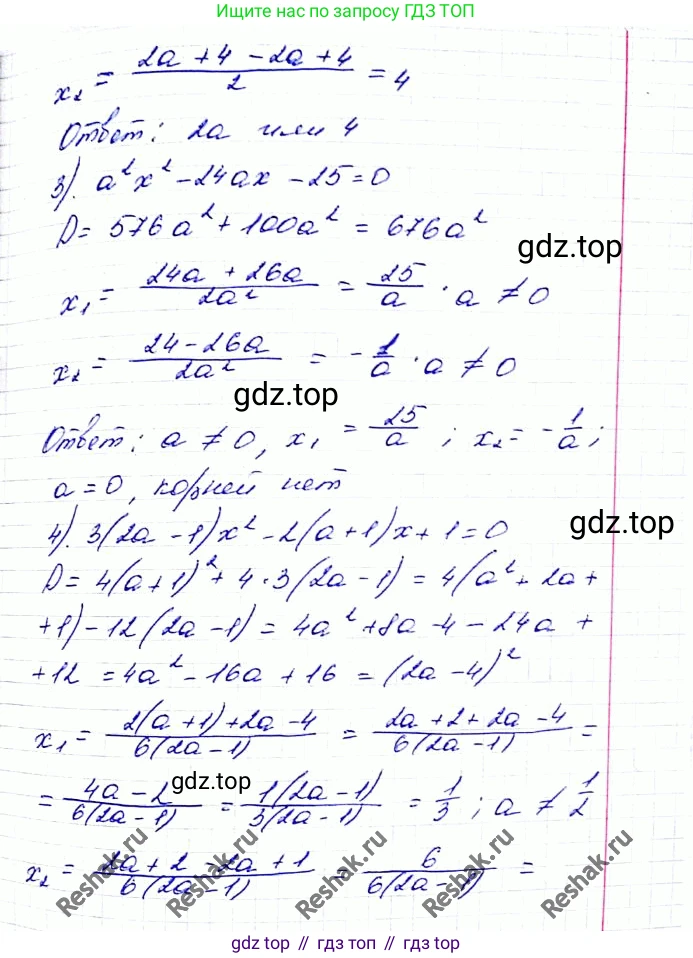 Ищите нас по запросу ГДЗ ТОП
x₂ = (2a + 4 - 2a + 4)/2 = 4
Ответ: 2a или 4
3). a²x² - 24ax - 25 = 0
D = 576a² + 100a² = 676a²
gdz.top
x₁ = (24a + 26a)/(2a²) = 25/a · a ≠ 0
x₂ = (24 - 26a)/(2a²) = - 1/a · a ≠ 0
gdz.top
Ответ: a ≠ 0, x₁ = 25/a ; x₂ = - 1/a ;
a = 0, корней нет
gdz.top
4). 3(2a - 1)x² - 2(a + 1)x + 1 = 0
D = 4(a + 1)² + 4 · 3(2a - 1) = 4(a² + 2a +
+ 1) - 12(2a - 1) = 4a² + 8a - 4 - 24a +
+ 12 = 4a² - 16a + 16 = (2a - 4)²
x₁ = (2(a + 1) + 2a - 4)/(6(2a - 1)) = (2a + 2 + 2a - 4)/(6(2a - 1)) =
gdz.top
= (4a - 2)/(6(2a - 1)) = (1(2a - 1))/(3(2a - 1)) = 1/3 ; a ≠ 1/2
x₂ = (2a + 2 - 2a + 1)/(6(2a - 1)) = 6/(6(2a - 1)) =
Reshak.ru
Reshak.ru
Reshak.ru
gdz.top // гдз топ // гдз.top